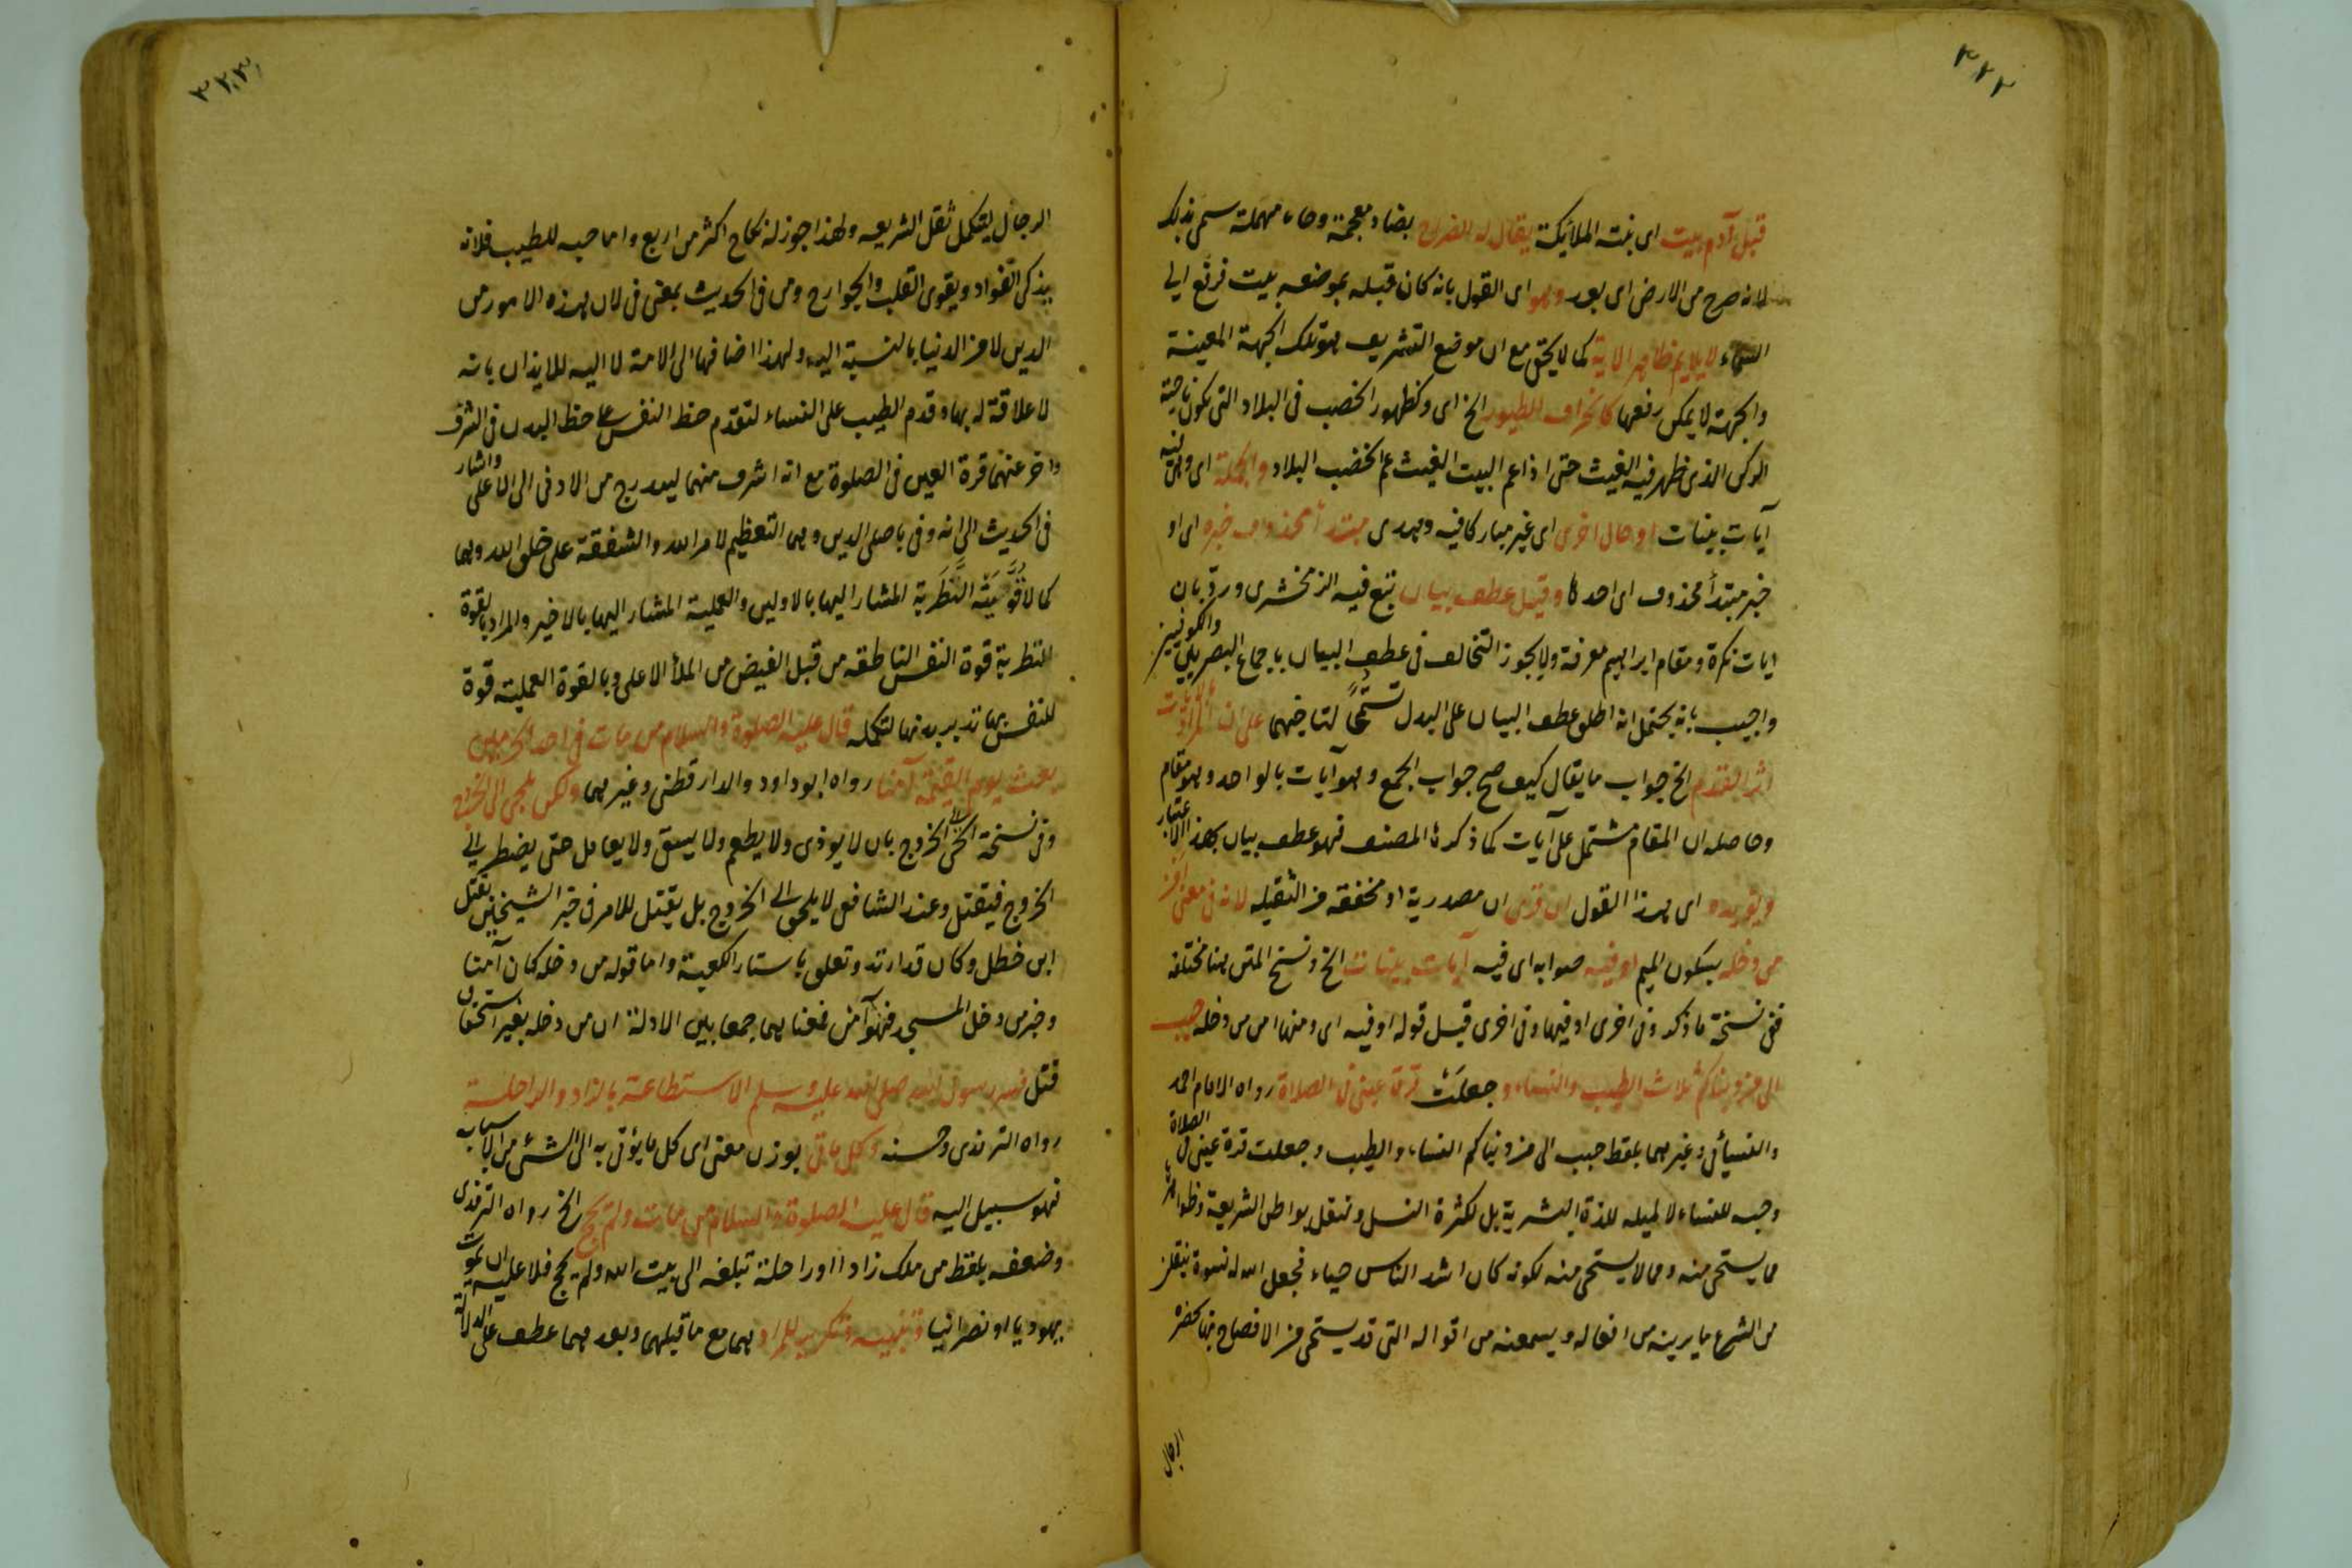 ٣٢٢
قبل آدم بيت اى بنته الملائكة يقال له الضراح بضاد معجمة وحاء مهملة سمى بذلك
لانه ضرح من الارض اى بعد وهو اى القول بانه كان قبله بموضعه بيت فرفع الى
السماء لا يلايم ظاهر الاية كما لا يخفى مع ان موضع التشريف هو تلك الجهة المعينة
والجهة لا يمكن رفعها كانحراف الطيور الخ اى وكظهور الخصب فى البلاد التى تكون ناحية
الركن الذى ظهر فيه الغيث حتى اذا عم البيت الغيث عم الخصب البلاد والجملة اى وهى فيه
آيات بينات او حال اخرى اى غير مباركا فيه وهدى مبتدأ محذوف خبره اى او
خبر مبتدأ محذوف اى احدها وقيل عطف بيان تبع فيه الزمخشرى ورد بان
ايات نكرة ومقام ابراهيم معرفة ولا يجوز التخالف فى عطف البيان باجماع البصريين والكوفيين
واجيب بانه يحتمل انه اطلق عطف البيان على البدل تسمحا لتاخيهما على ان المراد بالايات
اثر القدم الخ جواب ما يقال كيف صح جواب الجمع وهو آيات بالواحد وهو مقام
وحاصله ان المقام مشتمل على آيات كما ذكره المصنف فهو عطف بيان بهذا الاعتبار
ويؤيده اى هذا القول ان قرئ ان مصدرية او مخففة من الثقيلة لانه فى معنى امن
من دخله بسكون الميم او فيه صوابه اى فيه آيات بينات الخ ونسخ المتن هنا مختلفة
ففى نسخة ما ذكر وفى اخرى او فيها وفى اخرى قبل قوله او فيه اى ومنها امن من دخله حبب
الى من دنياكم ثلاث الطيب والنساء وجعلت قرة عينى فى الصلاة رواه الامام احمد
والنسيائى وغيرهما بلفظ حبب الى من دنياكم النساء والطيب وجعلت قرة عينى فى الصلاة
وحبه للنساء لا لميله للذة البشرية بل لكثرة النسل ونقل بواطن الشريعة وظواهرها
مما يستحى منه ومما لا يستحى منه لكونه كان اشد الناس حياء فجعل الله له نسوة ينقلن
من الشرع ما يرينه من افعاله ويسمعنه من اقواله التى قد يستحى من الافصاح بها بحضرة
الرجال
٣٢٣
الرجال ليتكمل نقل الشريعه ولهذا جوز له نكاح اكثر من اربع واما حبه للطيب فلانه
يذكى الفؤاد ويقوى القلب والجوارح ومن فى الحديث بمعنى فى لان هذه الامور من
الدين لا من الدنيا بالنسبة اليه ولهذا اضافها الى الامة لا اليه للايذان بانه
لا علاقة له بها وقدم الطيب على النساء لتقدم حظ النفس على حظ البدن فى الشرف
واخر عنهما قرة العين فى الصلوة مع انه اشرف منهما ليدرج من الادنى الى الاعلى واشار
فى الحديث الى انه وفى باصلى الدين وهما التعظيم لامر الله والشفقة على خلق الله وهما
كمالا قُوَّيته النَّظَرية المشار اليها بالاولين والعملية المشار اليها بالاخير والمراد بالقوة
النظرية قوة النفس الناطقه من قبل الفيض من الملأ الاعلى وبالقوة العملية قوة
للنفس بها تدبر بدنها لتكمله قال عليه الصلوة والسلام من مات فى احد الحرمين
بعث يوم القيمة آمنا رواه ابو داود والدارقطنى وغيرهما ولكن يلجى الى الخروج
وفى نسخة الى الخروج بان لا يوذى ولا يطعم ولا يسقى ولا يعامل حتى يضطر الى
الخروج فيقتل وعند الشافعى لا يلجى الى الخروج بل يقتل للامر فى خبر الشيخين بقتل
ابن خطل وكان قد ارتد وتعلق باستار الكعبة واما قوله من دخله كان آمنا
وخبر من دخل المسجد فهو آمن فمعناهما جمعا بين الادلة ان من دخله بغير استحقاق
قتل فسر رسول الله صلى الله عليه وسلم الاستطاعة بالزاد والراحلة
رواه الترمذى وحسنه وكل ماتى بوزن معنى اى كل ما يؤتى به الى الشئ من الاسباب
فهو سبيل اليه قال عليه الصلوة والسلام من مات ولم يحج الخ رواه الترمذى
وضعفه بلفظ من ملك زادا او راحلة تبلغه الى بيت الله ولم يحج فلا عليه ان يموت
يهوديا او نصرانيا وتنبيه وتكرير للمراد هما مع ما قبلهما وبعدهما عطف على الدلالة